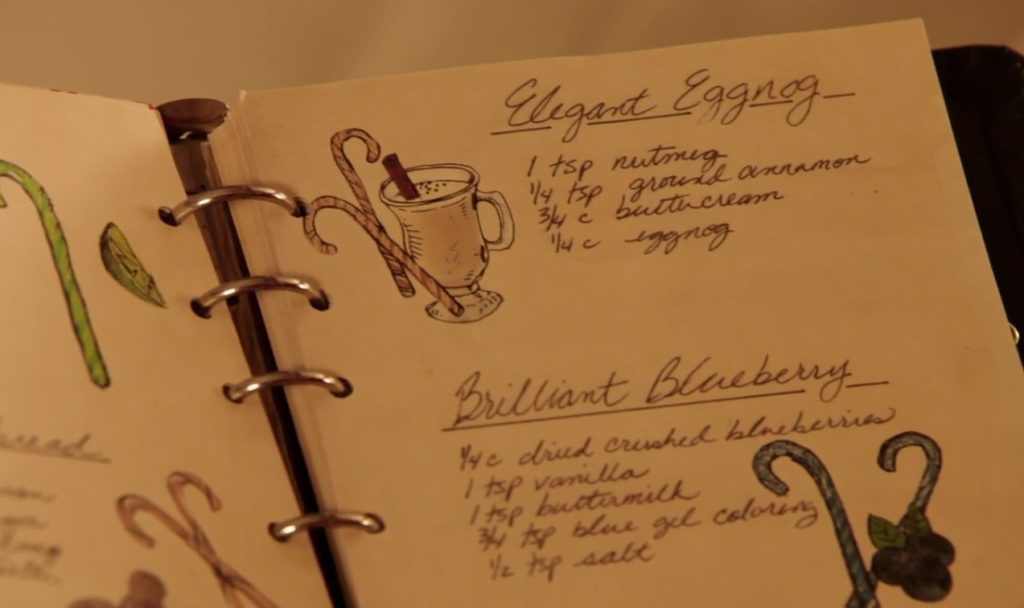 Elegant Eggnog
1 tsp nutmeg
1/4 tsp ground cinnamon
3/4 c buttercream
1/4 c eggnog
Brilliant Blueberry
1/4 c dried crushed blueberries
1 tsp vanilla
1 tsp buttermilk
3/4 tsp blue gel coloring
1/2 tsp salt